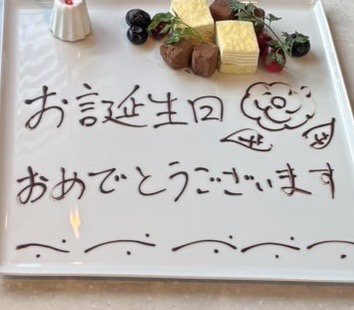 お誕生日
おめでとうございます